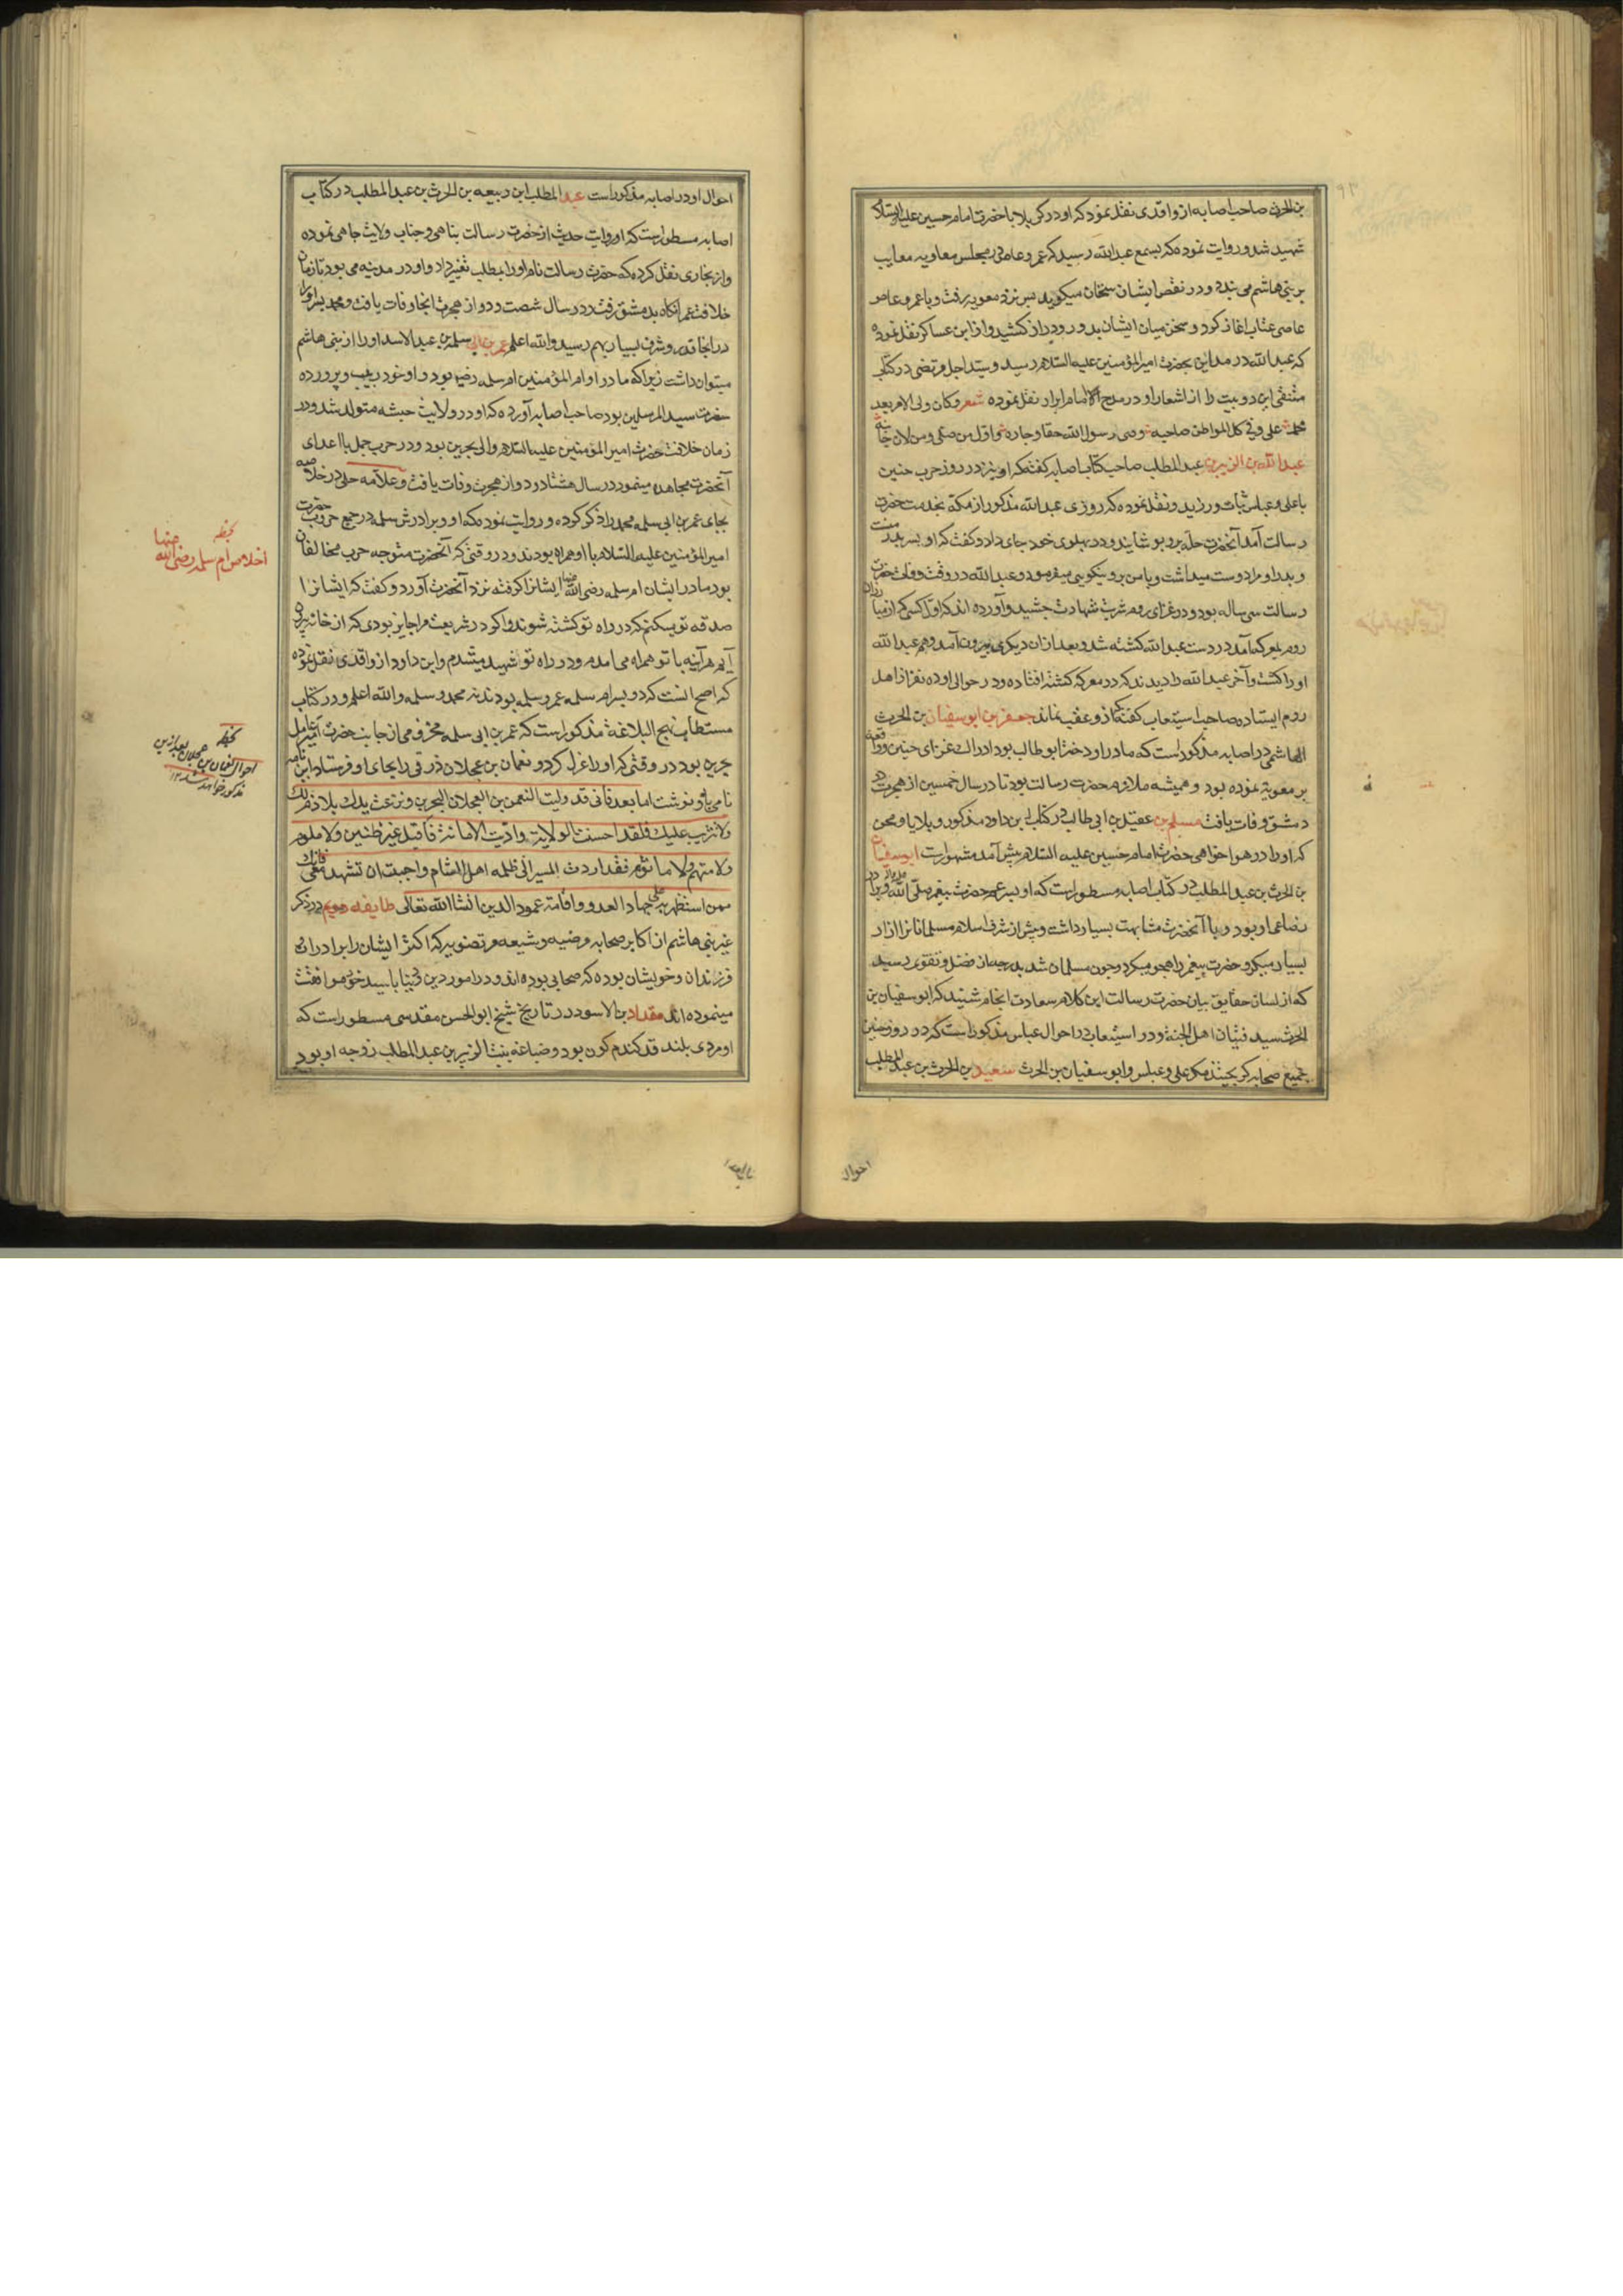 بن الحرث صاحب اصابه از واقدی نقل نموده که او در کربلا با حضرت امام حسین علیه السلام
شهید شد و روایت نموده که بسمع عبدالله رسید که عمرو عاص در مجلس معاویه معایب
بر بنی هاشم می بندد و در نقص ایشان سخنان میکوید پس نزد معویه رفت و با عمرو عاص
عاصی عتاب اغاز کرد و سخن میان ایشان بدور و دراز کشید و از ابن عساکر نقل نموده
که عبدالله در مداین بحضرت امیرالمؤمنین علیه السلام رسید و سید اجل مرتضی در کتاب
منتقی این دو بیت را از اشعار او در مدح امام ابرار نقل نموده شعر وکان ولی الامر بعد
محمد علی وفی کل المواطن صاحبه وصی رسول الله حقا وجاره واول من صلی ومن لان جانبه
عبدالله بن الزبیر بن عبدالمطلب صاحب کتاب اصابه کفته که او نیز در روز حرب حنین
با علی و عباس ثبات ورزید و نقل نموده که روزی عبدالله مذکور از مکه بخدمت حضرت
رسالت آمد آنحضرت حله برو پوشانید و در پهلوی خود جای داد و کفت که او پسر عم منست
و پدر او مرا دوست میداشت و با من بر و نیکویی میفرمود و عبدالله در وقت وفات حضرت
رسالت سی ساله بود و در غزای روم شربت شهادت چشید و آورده اند که اول کسی که از مبارزان
روم بمعرکه آمد در دست عبدالله کشته شد و بعد از ان دیکری بیرون آمد و هم عبدالله
او را کشت و آخر عبدالله را دیدند که در معرکه کشته افتاده و در حوالی او ده نفر از اهل
روم ایستاده صاحب استیعاب کفته که از و عقب نماند جعفر بن ابو سفیان بن الحرث
الهاشمی در اصابه مذکور است که مادر او دختر ابو طالب بود ادراک غزای حنین
نموده بود و همیشه ملازم حضرت رسالت بود تا در سال خمسین از هجرت در
دمشق وفات یافت مسلم بن عقیل بن ابی طالب در کتاب ابن داود مذکور و بلایا و محن
که او را در هوا خواهی حضرت امام حسین علیه السلام پیش آمد مشهور است ابو سفیان
بن الحرث بن عبدالمطلب در کتاب اصابه مسطور است که او پسر عم حضرت پیغمبر صلی الله علیه و آله و برادر
رضاعی او بود و با آنحضرت مشابهت بسیار داشت و پیش از شرف اسلام مسلمانانرا ازار
بسیار میکرد و حضرت پیغمبر را هجو میکرد و چون مسلمان شد بدرجه از فضل و تقوی رسید
که از لسان حقایق بیان حضرت رسالت این کلام سعادت انجام شنید که ابو سفیان بن
الحرث سید فتیان اهل الجنة و در استیعاب در احوال عباس مذکور است که در روز حنین
جمیع صحابه کریختند مکر علی و عباس و ابو سفیان بن الحرث سعید بن الحرث بن عبدالمطلب
احوال
احوال او در اصابه مذکور است عبدالمطلب ابن ربیعه بن الحرث بن عبدالمطلب در کتاب
اصابه مسطور است که او روایت حدیث از حضرت رسالت پناهی و جناب ولایت جاهی نموده
و از بخاری نقل کرده که حضرت رسالت نام او را بمطلب تغییر داد و او در مدینه می بود تا زمان
خلافت عمر انکاه بدمشق رفت و در سال شصت و دو از هجرت انجا وفات یافت و محمد پسر او را
در انجا قدر و شرف بسیار بهم رسید والله اعلم عمر بن ابی سلمة بن عبدالاسد او را از بنی هاشم
میتوان داشت زیرا که مادر او ام المؤمنین ام سلمه رضیها بود و او خود ربیب و پرورده
حضرت سید المرسلین بود صاحب اصابه آورده که او در ولایت حبشه متولد شد و در
زمان خلافت حضرت امیرالمؤمنین علیه السلام والی بحرین بود و در حرب جمل با اعدای
آنحضرت مجاهده مینمود در سال هشتاد و دو از هجرت وفات یافت و علامه حلی در خلاصه
بجای عمر بن ابی سلمه محمد را ذکر کرده و روایت نموده که او و برادرش سلمه در جمیع حروب حضرت
امیرالمؤمنین علیه السلام با او همراه بودند و در وقتی که آنحضرت متوجه حرب مخالفان
بود مادر ایشان ام سلمه رضی الله عنها ایشانرا کرفته نزد آنحضرت آورد و کفت که ایشانرا
صدقه تو میکنم که در راه تو کشته شوند و اکر در شریعت مرا جایز بودی که از خانه بیرون
آیم هر آینه با تو همراه می امدم و در راه تو شهید میشدم و ابن داود از واقدی نقل نموده
که اصح انست که دو پسر ام سلمه عمر و سلمه بودند نه محمد و سلمه والله اعلم و در کتاب
مستطاب نهج البلاغة مذکور است که عمر بن ابی سلمه مخزومی از جانب حضرت امیر عامل
بحرین بود در وقتی که او را عزل کرد و نعمان بن عجلان زرقی را بجای او فرستاد این نامه
نامی باو نوشت اما بعد فانی قد ولیت النعمن بن العجلان البحرین ونزعت یدک بلا ذم لک
ولا تثریب علیک فلقد احسنت الولایة وادیت الامانة فاقبل غیر ظنین ولا ملوم
ولا متهم ولا ماثوم فقد اردت المسیر الی ظلمه اهل الشام واحببت ان تشهد معی فانک
ممن استظهر به علی جهاد العدو واقامة عمود الدین انشا الله تعالی طایفه دویم در ذکر
غیر بنی هاشم از اکابر صحابه مرضیه و شیعه مرتضویه که اکثر ایشان را برادران
فرزندان و خویشان بوده که صحابی بوده اند و در امور دین و دنیا با سید خود موافقت
مینموده اند مقداد بن الاسود در تاریخ شیخ ابوالحسن مقدسی مسطور است که
او مردی بلند قد کندم کون بود و ضباعه بنت الزبیر بن عبدالمطلب زوجه او بود
اخلاص ام سلمه رضی الله عنها
احوال نعمان بن عجلان بعد ازین
مذکور خواهد شد ۱۲